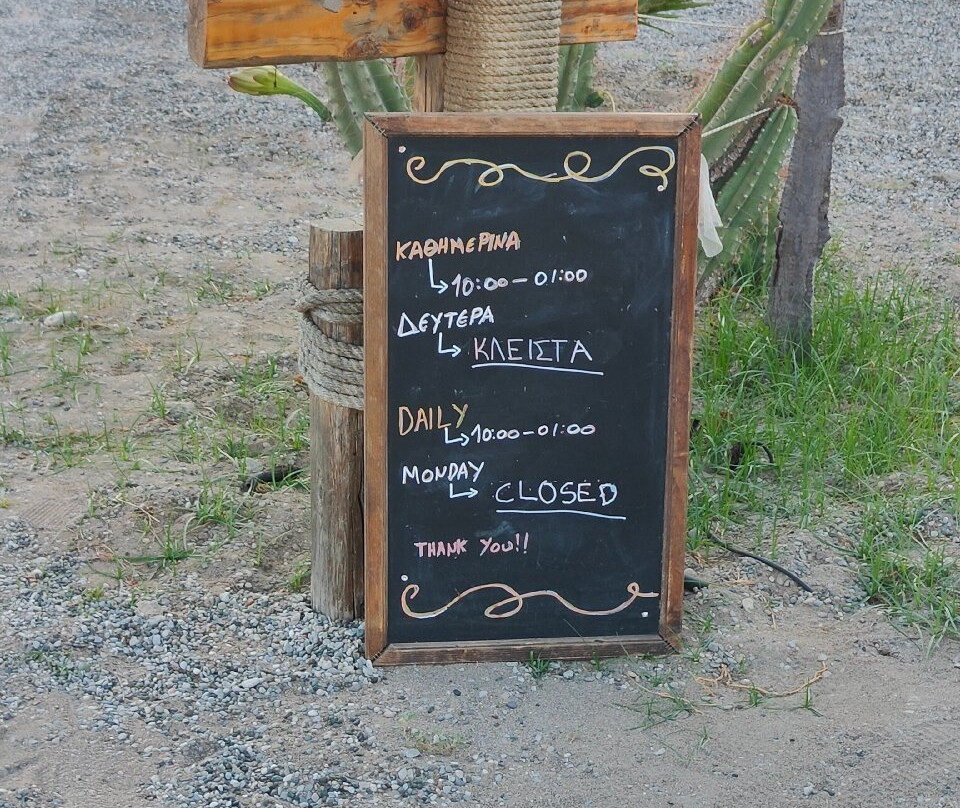 ΚΑΘΗΜΕΡΙΝΑ
10:00-01:00
ΔΕΥΤΕΡΑ
ΚΛΕΙΣΤΑ
DAILY
10:00-01:00
MONDAY
CLOSED
THANK YOU!!